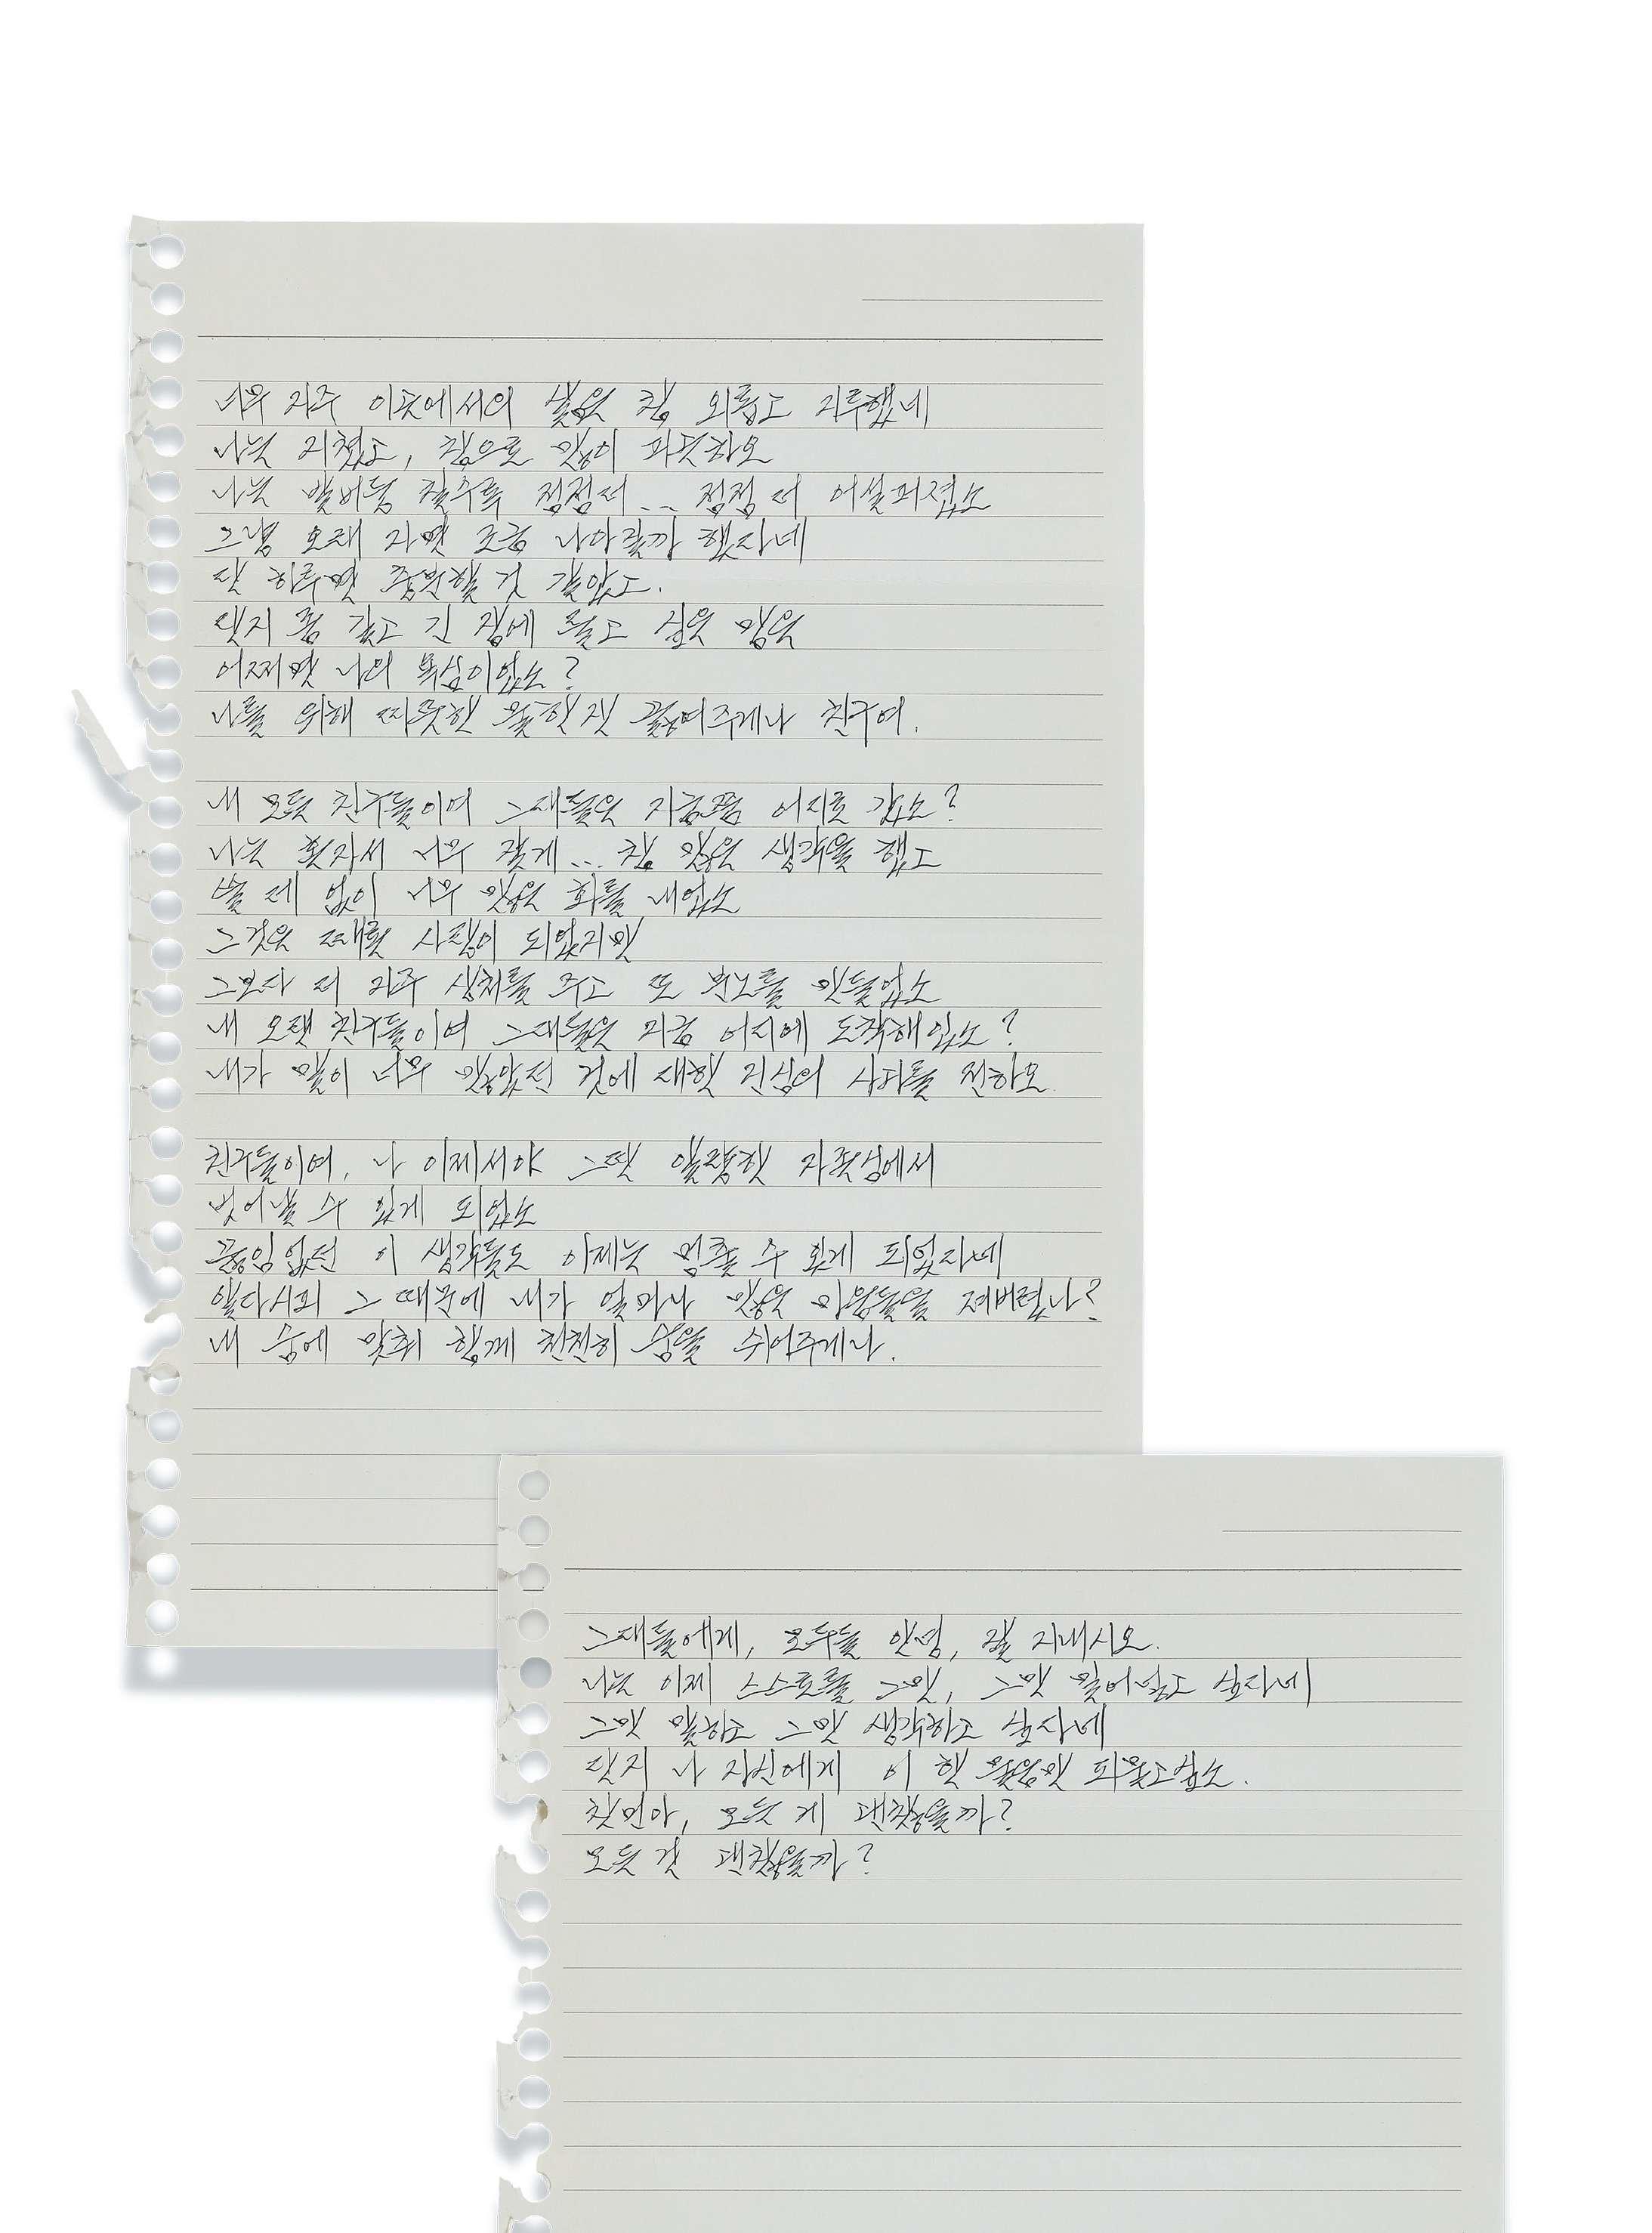 너무 자주 이곳에서의 삶은 참 외롭고 지루했네
나는 지쳤고, 참으로 많이 피곤하오
나는 발버둥 칠수록 점점더... 점점 더 어설퍼졌소
그냥 오래 자면 조금 나아질까 했다네
단 하루면 충분할 것 같았고.
단지 몸 갖고 긴 잠에 들고 싶은 맘은
어쩌면 나의 욕심이었소?
나를 위해 따뜻한 물 한 잔 끓여주게나 친구여.
내 모든 친구들이여 그대들은 지금쯤 어디로 갔소?
나는 혼자서 너무 깊게... 참 많은 생각을 했고
쓸 데 없이 너무 많은 화를 내었소
그것은 때론 사랑이 되었지만
그보다 더 자주 상처를 주고 또 분노를 만들었소
내 오랜 친구들이여 그대들은 지금 어디에 도착해있소?
내가 말이 너무 많았던 것에 대한 진심의 사과를 전하오.
친구들이여, 나 이제서야 그딴 알량한 자존심에서
벗어날 수 있게 되었소
끊임없던 이 생각들도 이제는 멈출 수 있게 되었다네
알다시피 그 때문에 내가 얼마나 많은 마음들을 져버렸나?
내 숨에 맞춰 함께 천천히 숨을 쉬어주게나.
그대들에게, 모두들 안녕, 잘 지내시오.
나는 이제 스스로를 그만, 그만 밀어넣고 싶다네
그만 말하고 그만 생각하고 싶다네
단지 나 자신에게 이 한 물음만 되묻고있소.
찬민아, 모든 게 괜찮을까?
모든 것 괜찮을까?